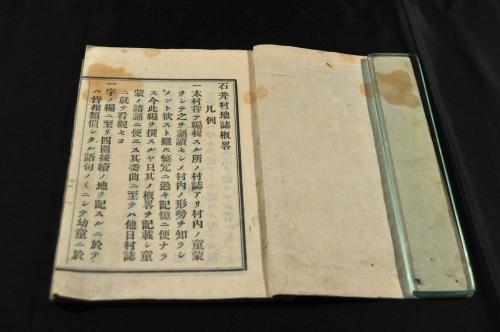 石井村地誌概畧
凡例
一本村嘗テ編輯スル所ノ村誌アリ村内ノ童蒙
ヲシテ之ヲ誦讀セシメ村内ノ形勢ヲ知ラシ
メント欲スト雖ℸ繁冗ニ過キ記憶ニ便ナラ
ス今此編ヲ撰スルヤ只其ノ概畧ヲ記載シ童
蒙ノ諸誦ニ便ニス其委曲ニ至テハ他日村誌
ニ就テ看觀セヨ
一字ノ編ニ至リ四圍接續ノ地ヲ記スルニ於テ
ハ皆相類似シタル語句ノミニシテ幼童ニ於